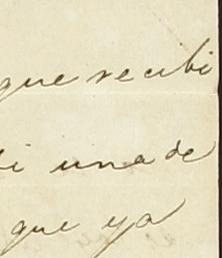 que recibi
di una de
que ya